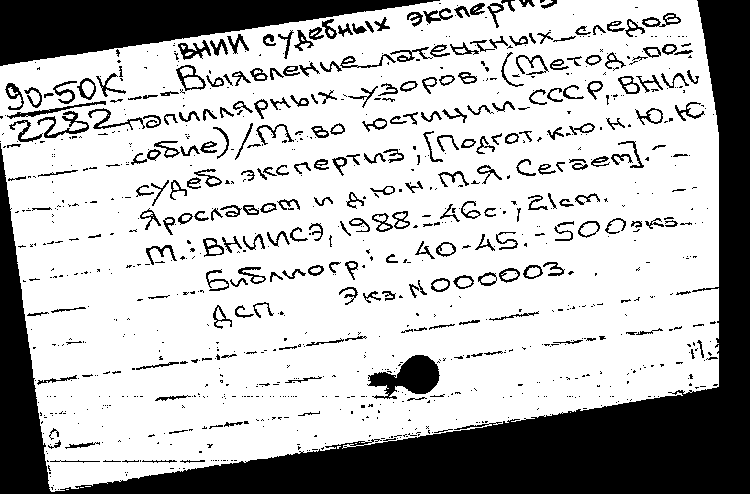 ВНИИ судебных экспертиз
90-50К
2282
Выявление латентных следов
папиллярных узоров: (Метод. по-
собие) / М-во юстиции СССР, ВНИИ
судеб. экспертиз; [Подгот. к.ю.н. Ю.Ю.
Ярослават и д.ю.н. М.Я. Сегает].-
М.: ВНИИСЭ, 1988.-46с.; 21см.
Библиогр.: с. 40-45.-500экз.
Дсп. Экз. N000003.